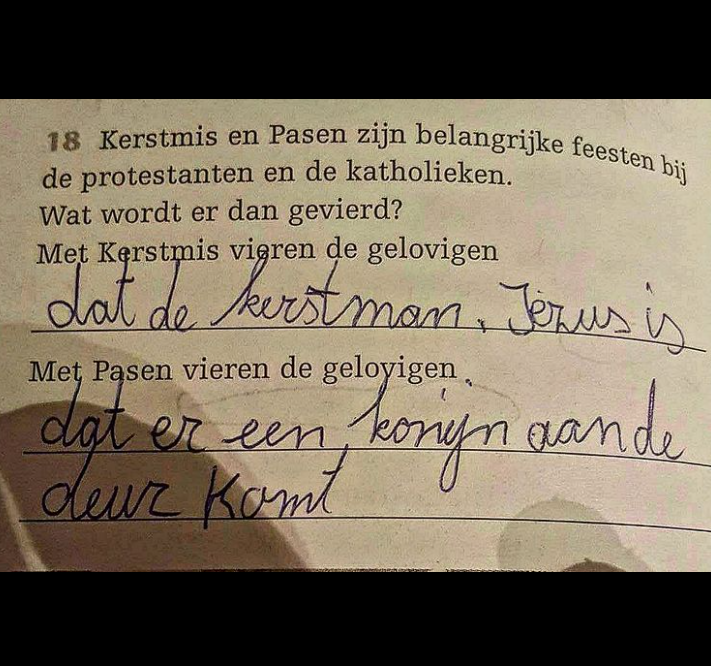 18 Kerstmis en Pasen zijn belangrijke feesten bij
de protestanten en de katholieken.
Wat wordt er dan gevierd?
Met Kerstmis vieren de gelovigen
dat de kerstman, Jezus is
Met Pasen vieren de gelovigen
dat er een konijn aan de
deur komt